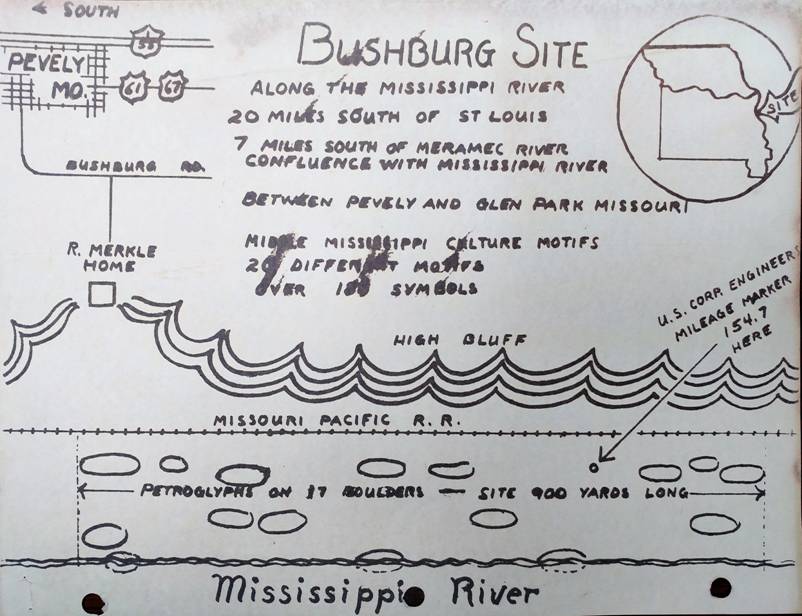 ← SOUTH
55
PEVELY
MO.
61 67
BUSHBURG RD.
R. MERKLE
HOME
BUSHBURG SITE
ALONG THE MISSISSIPPI RIVER
20 MILES SOUTH OF ST LOUIS
7 MILES SOUTH OF MERAMEC RIVER
CONFLUENCE WITH MISSISSIPPI RIVER
BETWEEN PEVELY AND GLEN PARK MISSOURI
MIDDLE MISSISSIPPI CULTURE MOTIFS
20 DIFFERENT MOTIFS
OVER 100 SYMBOLS
SITE
U.S. CORP. ENGINEERS
MILEAGE MARKER
154.7
HERE
HIGH BLUFF
MISSOURI PACIFIC R.R.
PETROGLYPHS ON 17 BOULDERS — SITE 900 YARDS LONG
Mississippi River